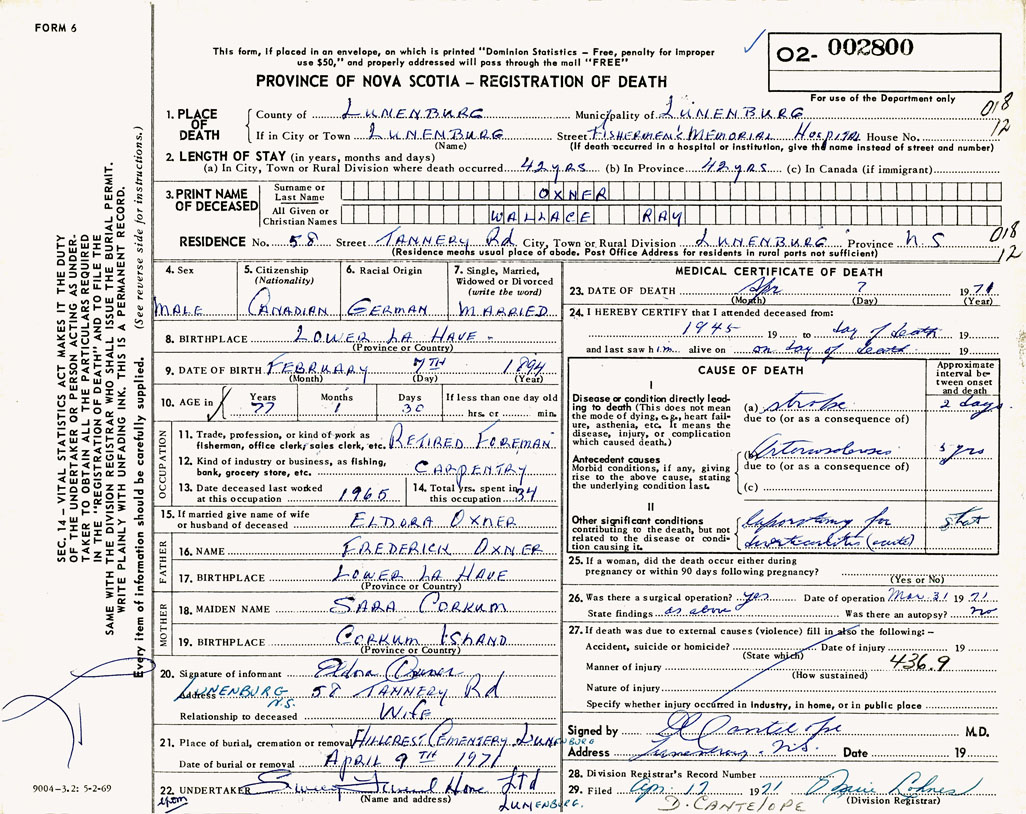 FORM 6
This form, if placed in an envelope, on which is printed "Dominion Statistics – Free, penalty for improper
use $50," and properly addressed will pass through the mail "FREE"
PROVINCE OF NOVA SCOTIA – REGISTRATION OF DEATH
02- 002800
For use of the Department only
018
12
1. PLACE OF DEATH County of LUNENBURG Municipality of LUNENBURG
If in City or Town LUNENBURG Street FISHERMEN'S MEMORIAL HOSPITAL House No.
(Name) (If death occurred in a hospital or institution, give the name instead of street and number)
2. LENGTH OF STAY (in years, months and days)
(a) In City, Town or Rural Division where death occurred 42 yrs (b) In Province 42 yrs (c) In Canada (if immigrant)
3. PRINT NAME OF DECEASED Surname or Last Name OXNER
All Given or Christian Names WALLACE RAY
RESIDENCE No. 58 Street TANNERY Rd City, Town or Rural Division LUNENBURG Province N.S
(Residence means usual place of abode. Post Office Address for residents in rural ports not sufficient)
018
12
4. Sex MALE
5. Citizenship (Nationality) CANADIAN
6. Racial Origin GERMAN
7. Single, Married, Widowed or Divorced (write the word) MARRIED
8. BIRTHPLACE LOWER LA HAVE -
(Province or Country)
9. DATE OF BIRTH FEBRUARY 7TH 1894
(Month) (Day) (Year)
10. AGE in Years 77 Months 1 Days 30 If less than one day old
hrs. or min.
OCCUPATION
11. Trade, profession, or kind of work as
fisherman, office clerk, sales clerk, etc. RETIRED FOREMAN
12. Kind of industry or business, as fishing,
bank, grocery store, etc. CARPENTRY
13. Date deceased last worked
at this occupation 1965
14. Total yrs. spent in
this occupation 34
15. If married give name of wife
or husband of deceased ELDORA OXNER
FATHER
16. NAME FREDERICK OXNER
17. BIRTHPLACE LOWER LA HAVE
(Province or Country)
MOTHER
18. MAIDEN NAME SARA CORKUM
19. BIRTHPLACE CORKUM ISLAND
(Province or Country)
20. Signature of informant Eldora Oxner
Address LUNENBURG N.S. 58 TANNERY Rd
Relationship to deceased WIFE
21. Place of burial, cremation or removal HILLCREST CEMENTERY LUNENBURG
Date of burial or removal APRIL 9TH 1971
22. UNDERTAKER Funeral Home Ltd
(Name and address) LUNENBURG.
MEDICAL CERTIFICATE OF DEATH
23. DATE OF DEATH Apr 7 1971
(Month) (Day) (Year)
24. I HEREBY CERTIFY that I attended deceased from:
1945 19 to day of death 19
and last saw him alive on on day of death 19
CAUSE OF DEATH
Approximate interval between onset and death
I
Disease or condition directly leading to death (This does not
mean the mode of dying, e.g., heart failure, asthenia, etc. It means the
disease, injury, or complication
which caused death.)
(a) stroke 2 days
due to (or as a consequence of)
Antecedent causes
Morbid conditions, if any, giving
rise to the above cause, stating
the underlying condition last.
(b) Arteriosclerosis yrs
due to (or as a consequence of)
(c)
II
Other significant conditions
contributing to the death, but not
related to the disease or condition causing it.
laparotomy for
diverticulitis (acute)
25. If a woman, did the death occur either during
pregnancy or within 90 days following pregnancy?
(Yes or No)
26. Was there a surgical operation? yes Date of operation Mar 31 1971
State findings as above Was there an autopsy? no
27. If death was due to external causes (violence) fill in also the following: –
Accident, suicide or homicide? Date of injury 19
(State which) 436.9
Manner of injury
(How sustained)
Nature of injury
Specify whether injury occurred in industry, in home, or in public place
Signed by D Cantelope M.D.
Address Lunenburg N.S. Date 19
28. Division Registrar's Record Number
29. Filed Apr. 12 1971 Lohnes
D. CANTELOPE (Division Registrar)
9004-3.2: 5-2-69
SEC. 14 – VITAL STATISTICS ACT MAKES IT THE DUTY
OF THE UNDERTAKER OR PERSON ACTING AS UNDERTAKER TO OBTAIN ALL THE PARTICULARS REQUIRED
IN THE "REGISTRATION OF DEATH" AND TO FILE THE
SAME WITH THE DIVISION REGISTRAR WHO SHALL ISSUE THE BURIAL PERMIT.
WRITE PLAINLY WITH UNFADING INK. THIS IS A PERMANENT RECORD.
Every item of information should be carefully supplied. (See reverse side for instructions.)